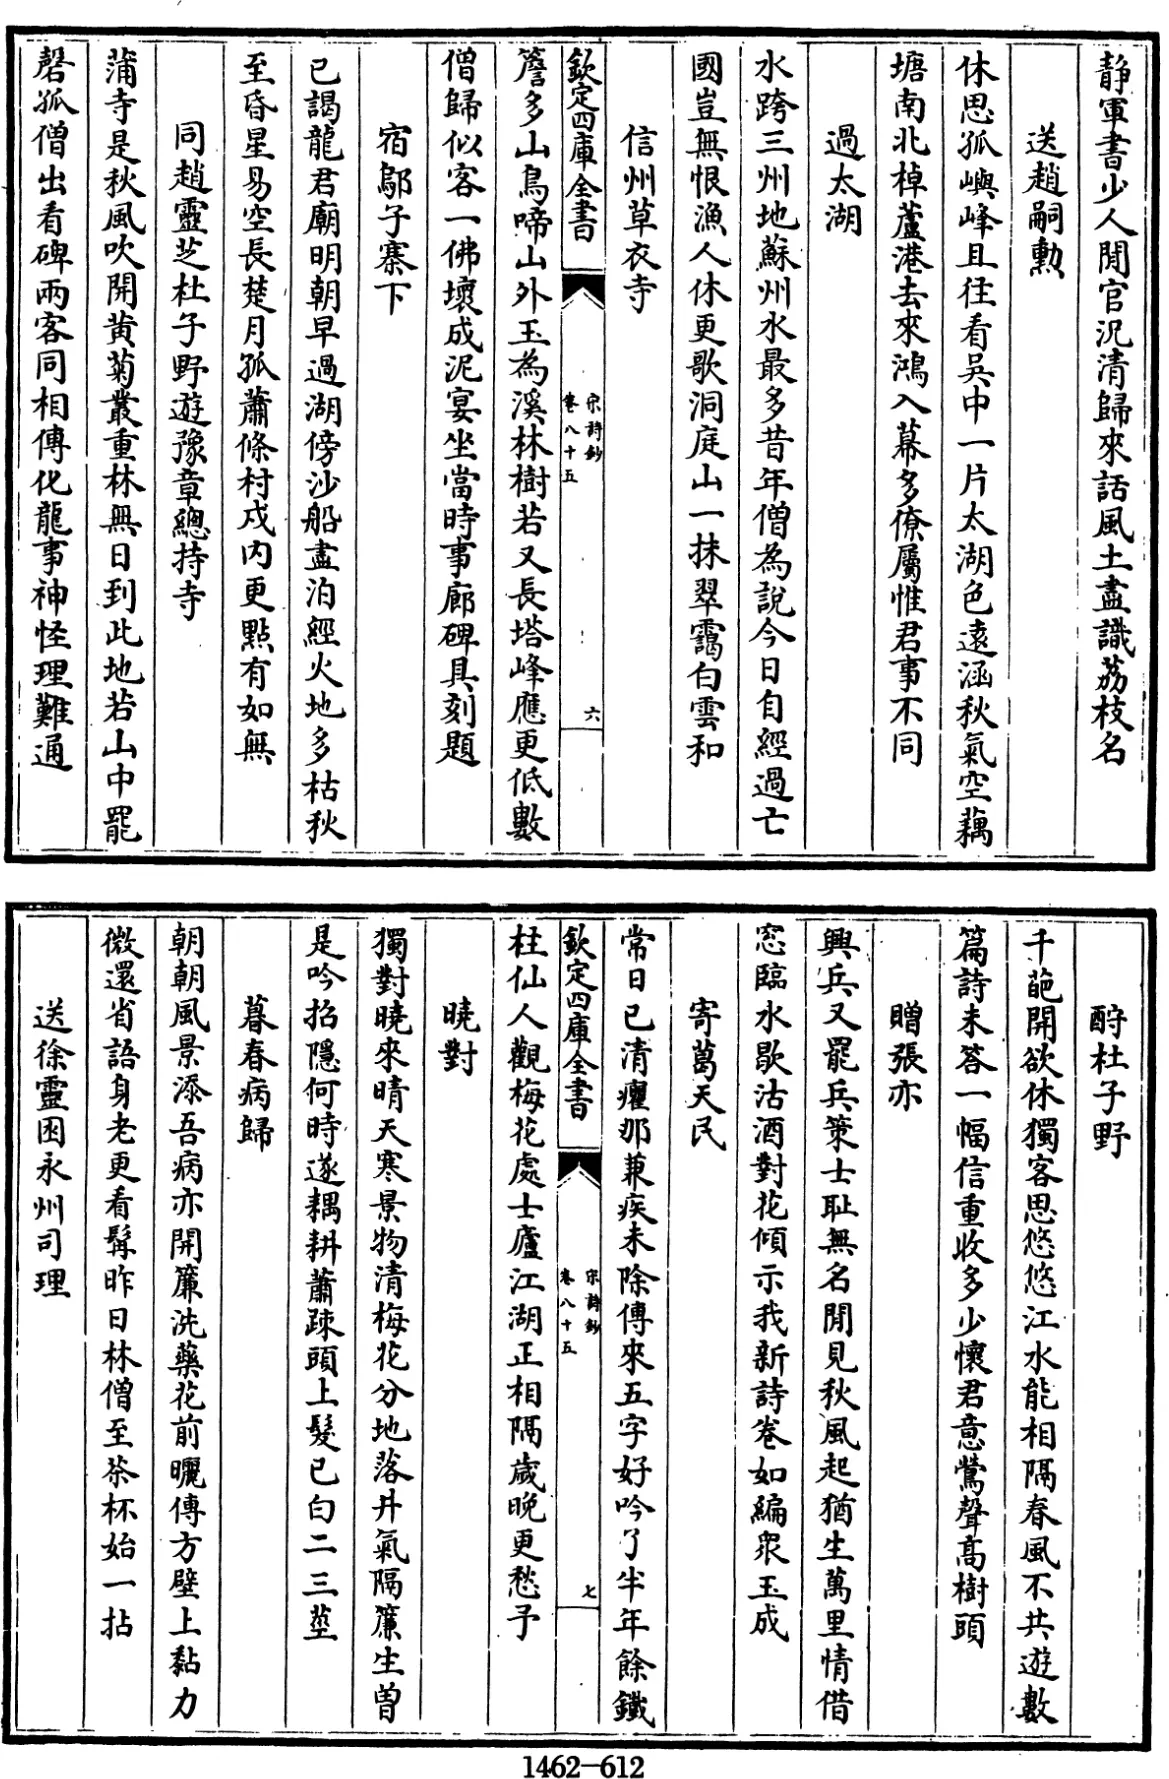 静軍書少人閒官況清歸來話風土盡識荔枝名
送趙嗣勲
休思孤嶼峰且往看吳中一片太湖色逺涵秋氣空藕
塘南北棹蘆港去來鴻入幕多僚屬惟君事不同
過太湖
水跨三州地蘇州水最多昔年僧為說今日自經過亡
國豈無恨漁人休更歌洞庭山一抹翠靄白雲和
信州草衣寺
欽定四庫全書
宋詩鈔
卷八十五
六
簷多山鳥啼山外玉為溪林樹若又長塔峰應更低數
僧歸似客一佛壞成泥宴坐當時事廊碑具刻題
宿鄔子寨下
已謁龍君廟明朝早過湖傍沙船盡泊經火地多枯秋
至昏星易空長楚月孤蕭條村戍內更點有如無
同趙靈芝杜子野遊豫章總持寺
蒲寺是秋風吹開黄菊叢重林無日到此地若山中罷
磬孤僧出看碑兩客同相傳化龍事神怪理難通
酧杜子野
千葩開欲休獨客思悠悠江水能相隔春風不共遊數
篇詩未答一幅信重收多少懷君意鶯聲髙樹頭
贈張亦
興兵又罷兵策士耻無名閒見秋風起猶生萬里情借
窓臨水歇沽酒對花傾示我新詩卷如編衆玉成
寄葛天民
常日已清癯那兼疾未除傳來五字好吟了半年餘鐵
欽定四庫全書
宋詩鈔
卷八十五
七
柱仙人觀梅花處士廬江湖正相隔歳晚更愁予
曉對
獨對曉來晴天寒景物清梅花分地落井氣隔簾生曽
是吟招隱何時遂耦耕蕭疎頭上髮已白二三莖
暮春病歸
朝朝風景添吾病亦開簾洗藥花前曬傳方壁上黏力
微還省語身老更看髯昨日林僧至茶杯始一拈
送徐靈囦永州司理
1462-612